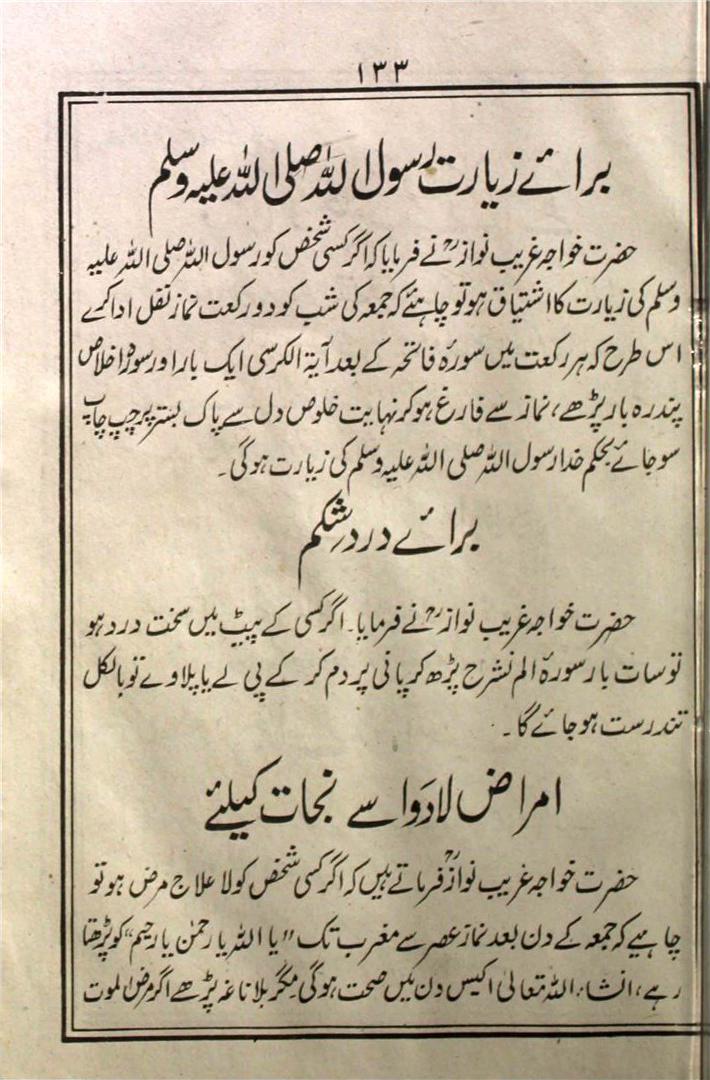 ۱۳۳
برائے زیارت رسول اللہ صلی اللہ علیہ وسلم
حضرت خواجہ غریب نوازؒ نے فرمایا کہ اگر کسی شخص کو رسول اللہ صلی اللہ علیہ
وسلم کی زیارت کا اشتیاق ہو تو چاہئے کہ جمعہ کی شب کو دو رکعت نماز نفل ادا کرے
اس طرح کہ ہر رکعت میں سورۂ فاتحہ کے بعد آیۃ الکرسی ایک بار اور سورۂ اخلاص
پندرہ بار پڑھے، نماز سے فارغ ہو کر نہایت خلوص دل سے پاک بستر پر چپ چاپ
سو جائے بحکم خدا رسول اللہ صلی اللہ علیہ وسلم کی زیارت ہوگی۔
برائے دردِ شکم
حضرت خواجہ غریب نوازؒ نے فرمایا۔ اگر کسی کے پیٹ میں سخت درد ہو
تو سات بار سورۂ الم نشرح پڑھ کر پانی پر دم کر کے پی لے یا پلاوے تو بالکل
تندرست ہو جائے گا۔
امراض لا دَوا سے نجات کیلئے
حضرت خواجہ غریب نوازؒ فرماتے ہیں کہ اگر کسی شخص کو لا علاج مرض ہو تو
چاہیے کہ جمعہ کے دن بعد نماز عصر سے مغرب تک "یا اللہ یا رحمٰن یا رحیم" کو پڑھتا
رہے، انشاء اللہ تعالیٰ اکیس دن میں صحت ہوگی مگر بلا ناغہ پڑھے اگر مرض الموت